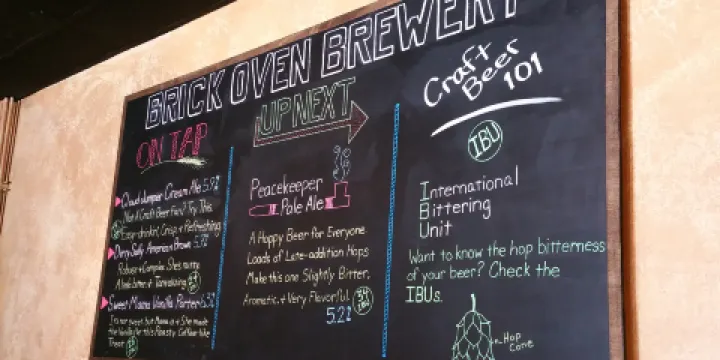 BRICK OVEN BREWERY
ON TAP
Cloud Jumper Cream Ale 5.9%
Not A Craft Beer Fan? Try This
Easy-drinkin', Crisp + Refreshing
American Brown 5.7%
Robust + Complex. She's
A little bitter +
Sweet Mama Vanilla Porter
It's not sweet but Mama is + She made
the Vanilla for this Roasty
Treat
UP NEXT
Peacekeeper
Pale Ale
A Hoppy Beer for Everyone
Loads of Late-addition Hops
Make this one Slightly Bitter,
Aromatic, + Very Flavorful.
34 IBU
5.2%
Craft
Beer
101
IBU
International
Bittering
Unit
Want to know the hop bitterness
of your beer? Check the
IBUs.
Hop
Cone